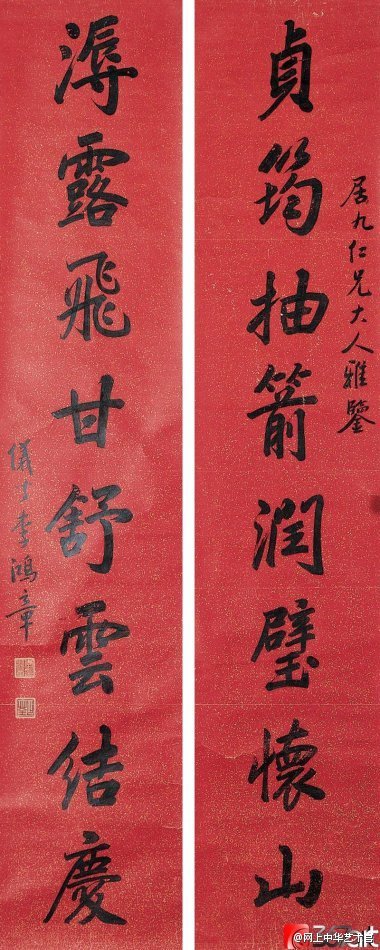 貞筠抽箭潤璧懷山
居九仁兄大人雅鑒
溽露飛甘舒雲結慶
儀叟李鴻章
@网上中华艺术宫